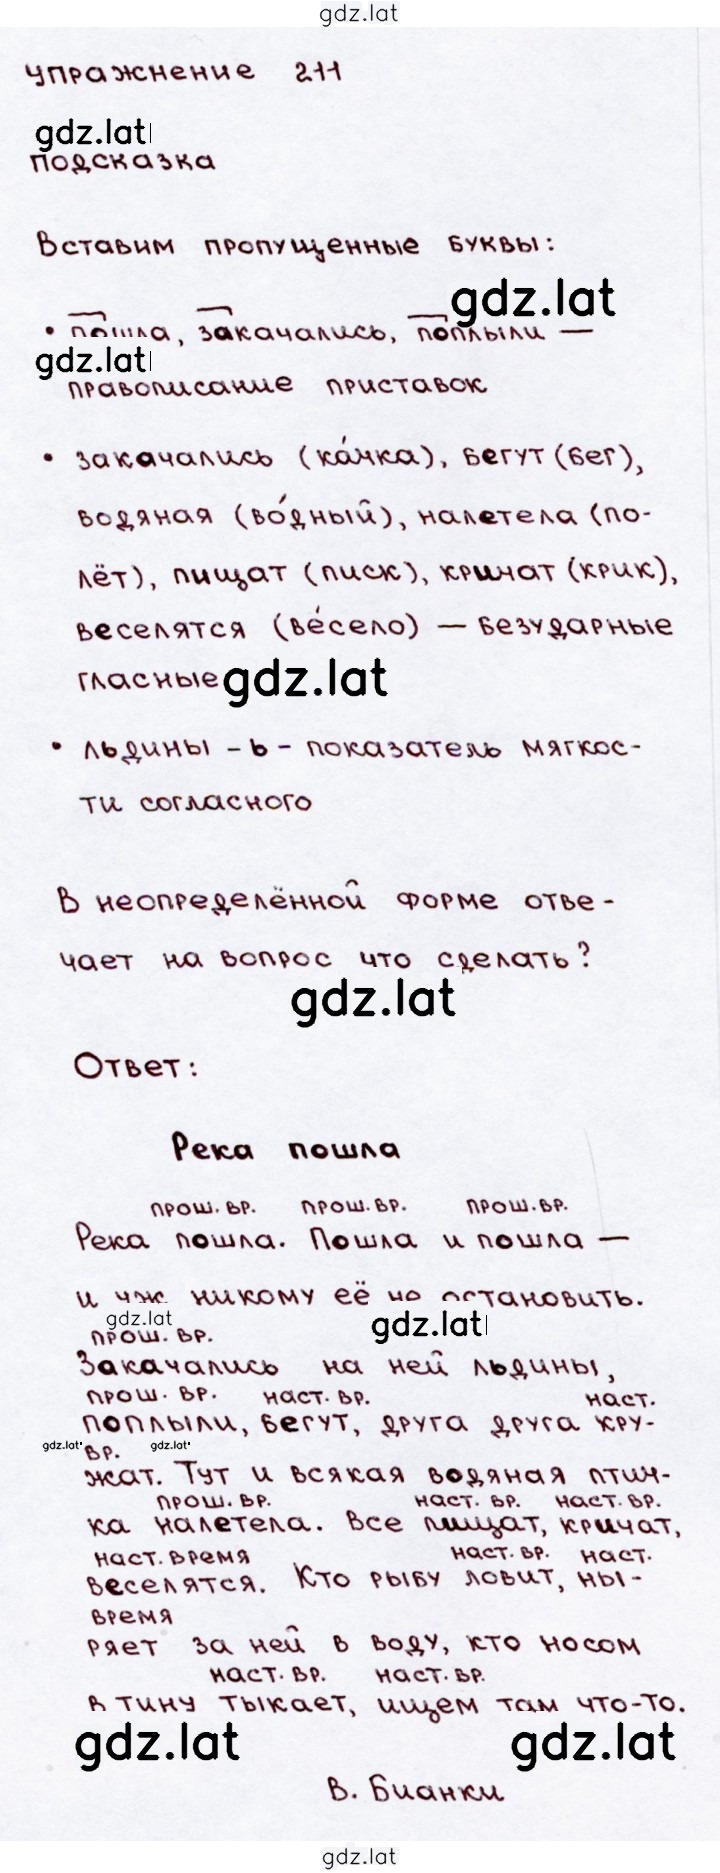 gdz.lat
упражнение 211
gdz.lat
подсказка
Вставим пропущенные буквы:
gdz.lat
• пошла, закачались, поплыли —
gdz.lat
правописание приставок
• закачались (ка́чка), бегут (бег),
водяная (во́дный), налетела (по-
лёт), пищат (писк), кричат (крик),
веселятся (ве́село) — безударные
гласные gdz.lat
• льдины - ь - показатель мягкос-
ти согласного
В неопределённой форме отве-
чает на вопрос что сделать?
gdz.lat
Ответ:
Река пошла
прош. вр. прош. вр. прош. вр.
Река пошла. Пошла и пошла —
и уж никому её не остановить.
gdz.lat gdz.lat
прош. вр.
Закачались на ней льдины,
прош. вр. наст. вр. наст.
поплыли, бегут, друга друга кру-
gdz.lat вр. gdz.lat
жат. Тут и всякая водяная птич-
прош. вр. наст. вр. наст. вр.
ка налетела. Все пищат, кричат,
наст. время наст. вр. наст.
веселятся. Кто рыбу ловит, ны-
время
ряет за ней в воду, кто носом
наст. вр. наст. вр.
в тину тыкает, ищем там что-то.
gdz.lat gdz.lat
В. Бианки
gdz.lat